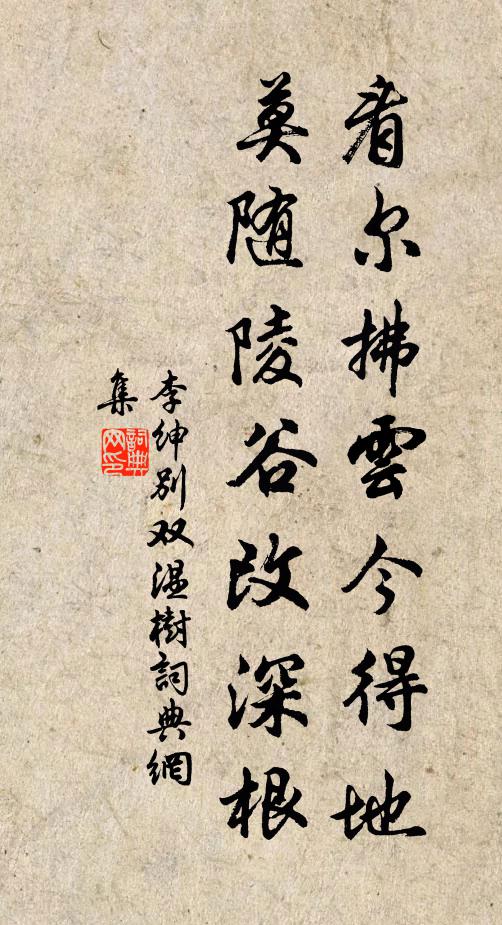 看尔拂雲今得地
莫随陵谷改深根
李绅别双温樹詞典網
集
詞典网印